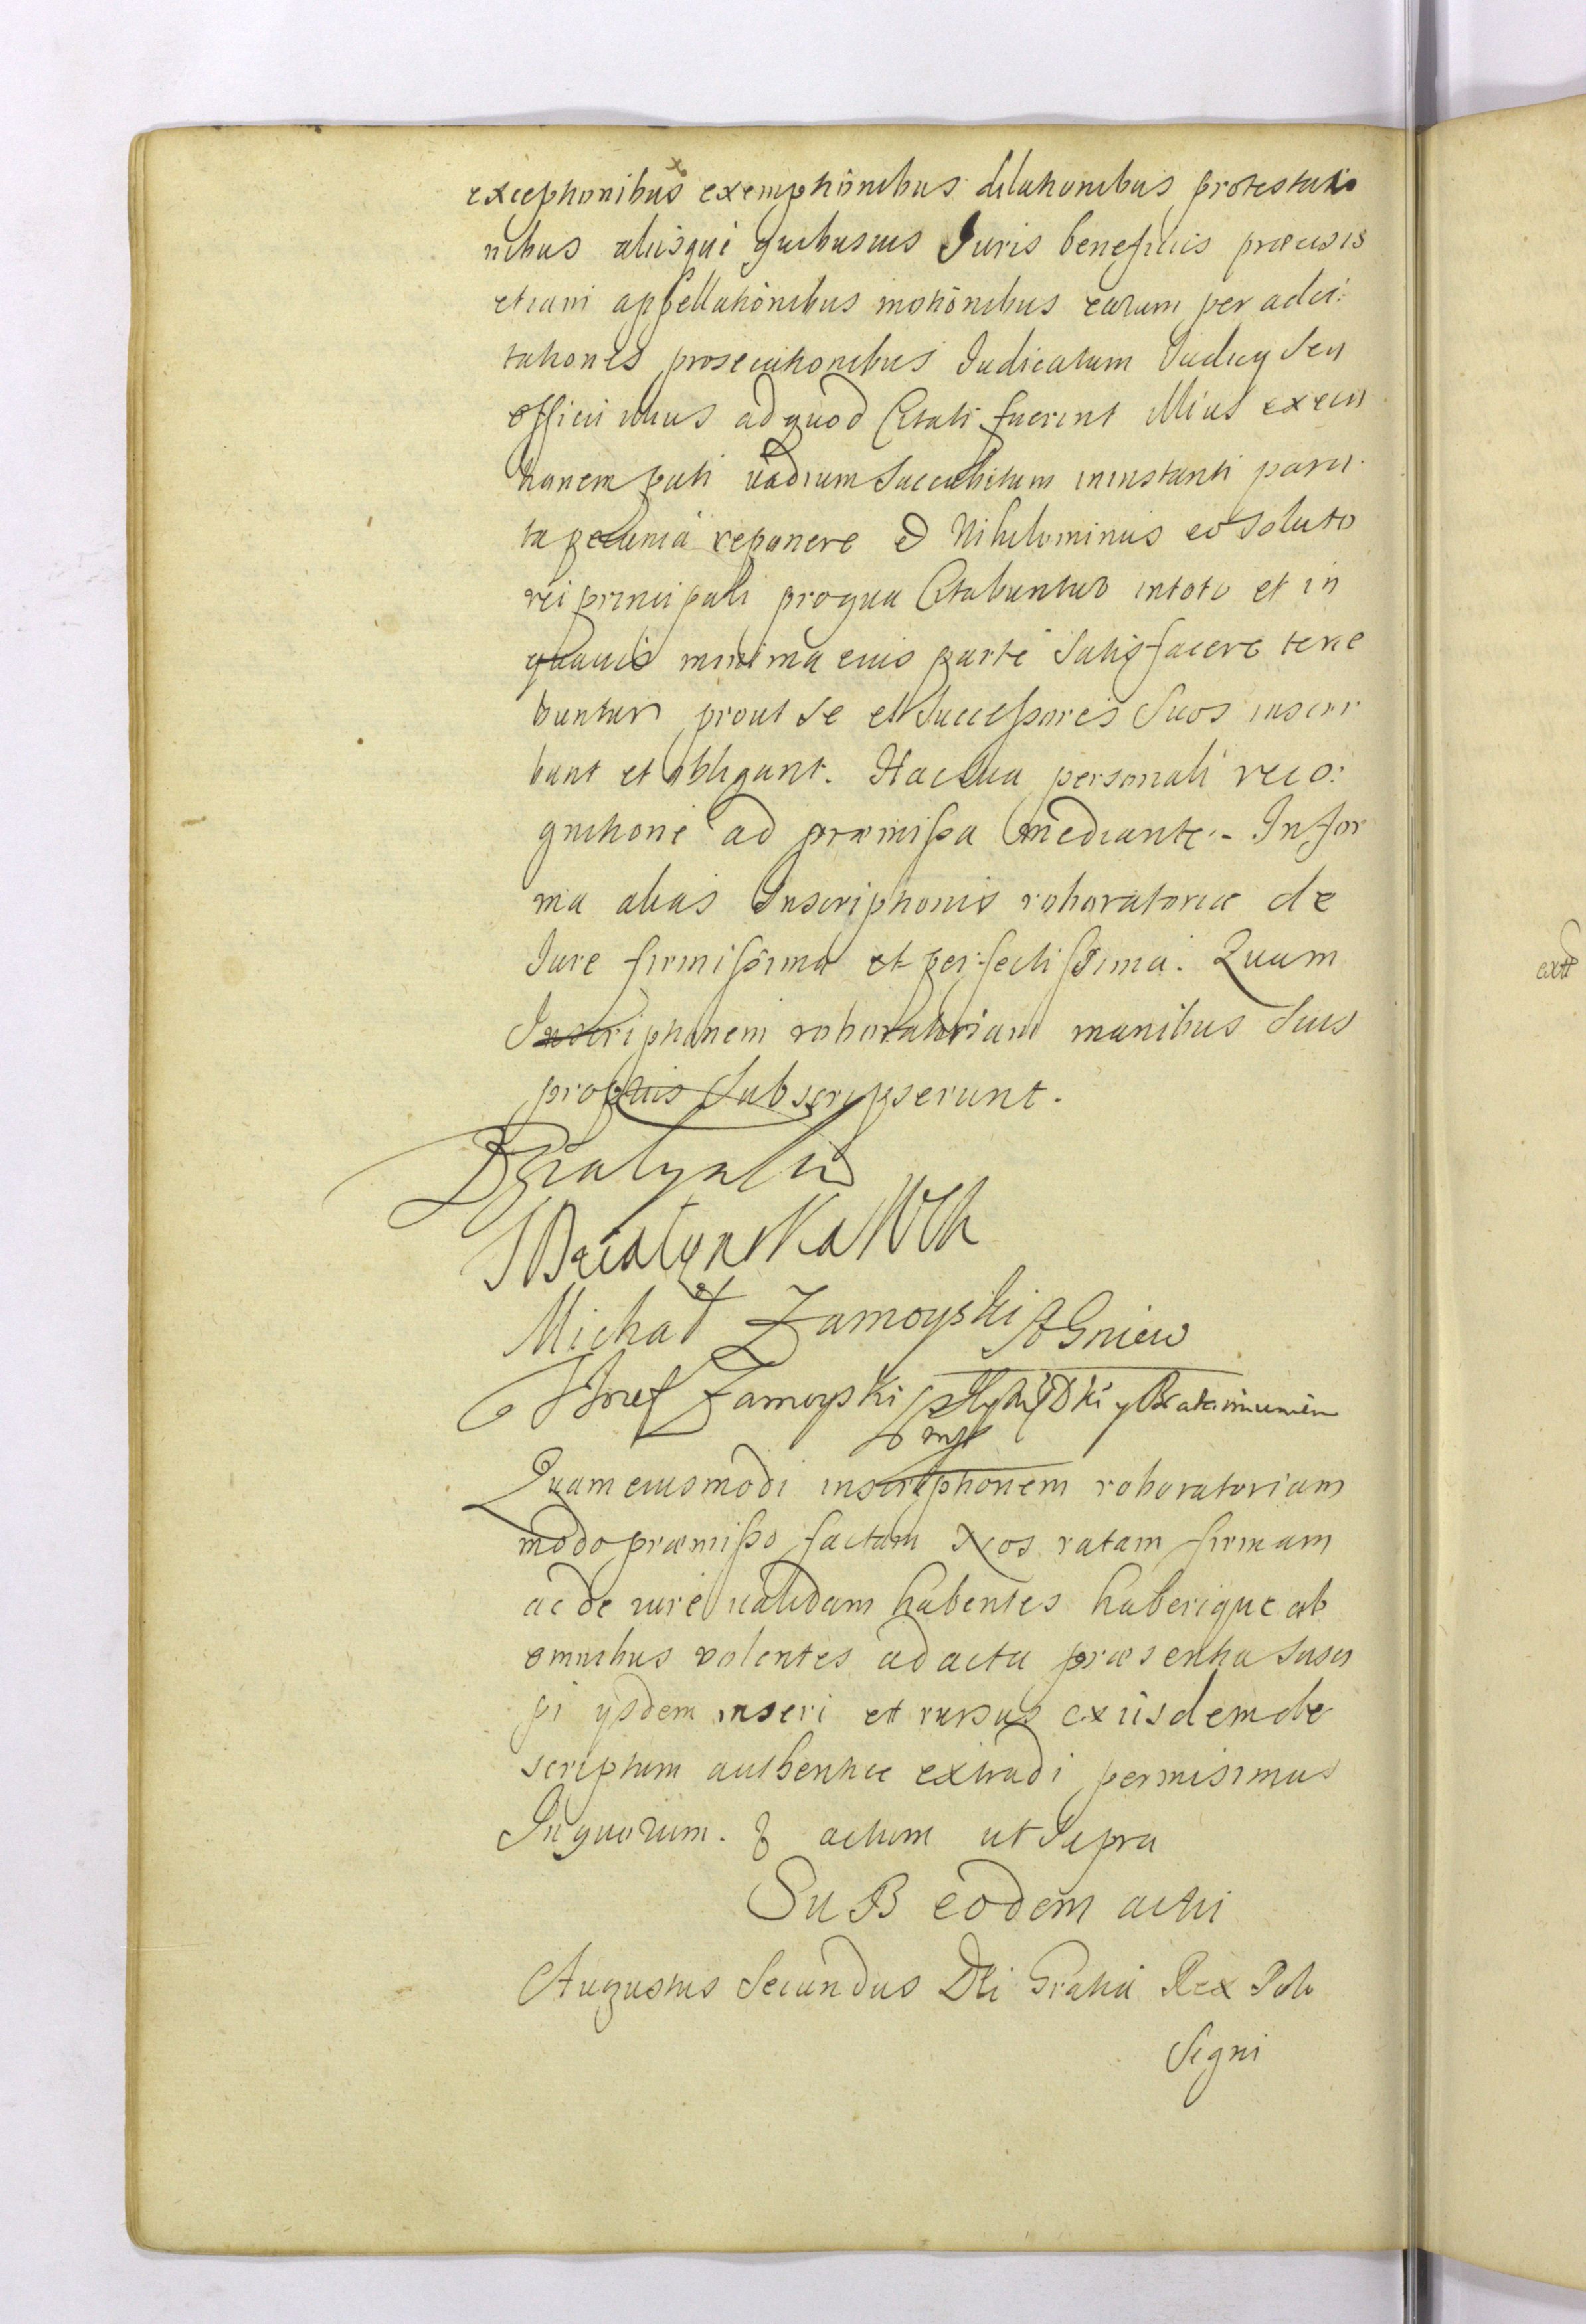 exceptionibus exemptionibus dilationibus protestatio
nibus aliisque quibusuis Iuris beneficiis præcisis
etiam appellationibus motionibus earum per adci:
tationes prosecutionibus Iudicatum Iudicy Seu
officii illius ad quod Citati fuerint illius execu
tionem pati vadium Succubitum in instanti para
ta pecunia reponere et Nihilominus eo Soluto
rei principali pro qua Citabuntur in toto et in
quauis minima eius parte Satisfacere tene
buntur prout Se et Successores Suos inscri
bunt et obligant. Hac Sua personali reco:
gnitione ad præmissa mediante.- In for
ma alias Inscriptionis roboratoriæ de
Iure firmissima et perfectissima. Quam
Inscriptionem roboratoriam manibus Suis
propriis Subscripserunt.
Działyński
Działynska WCh
Michał Zamoyski Gniew
Jozef Zamoyski
mp
Quam eiusmodi inscriptionem roboratoriam
modo præmisso factam Nos ratam firmam
ac de iure validam habentes haberique ab
omnibus volentes ad acta præsentia Susci
pi ysdem inseri et rursus ex iisdem de
scriptum authentice extradi permisimus
In quorum. actum ut Supra
SuB eodem actu
Augustus Secundus Dei Gratia Rex Polo
Signi